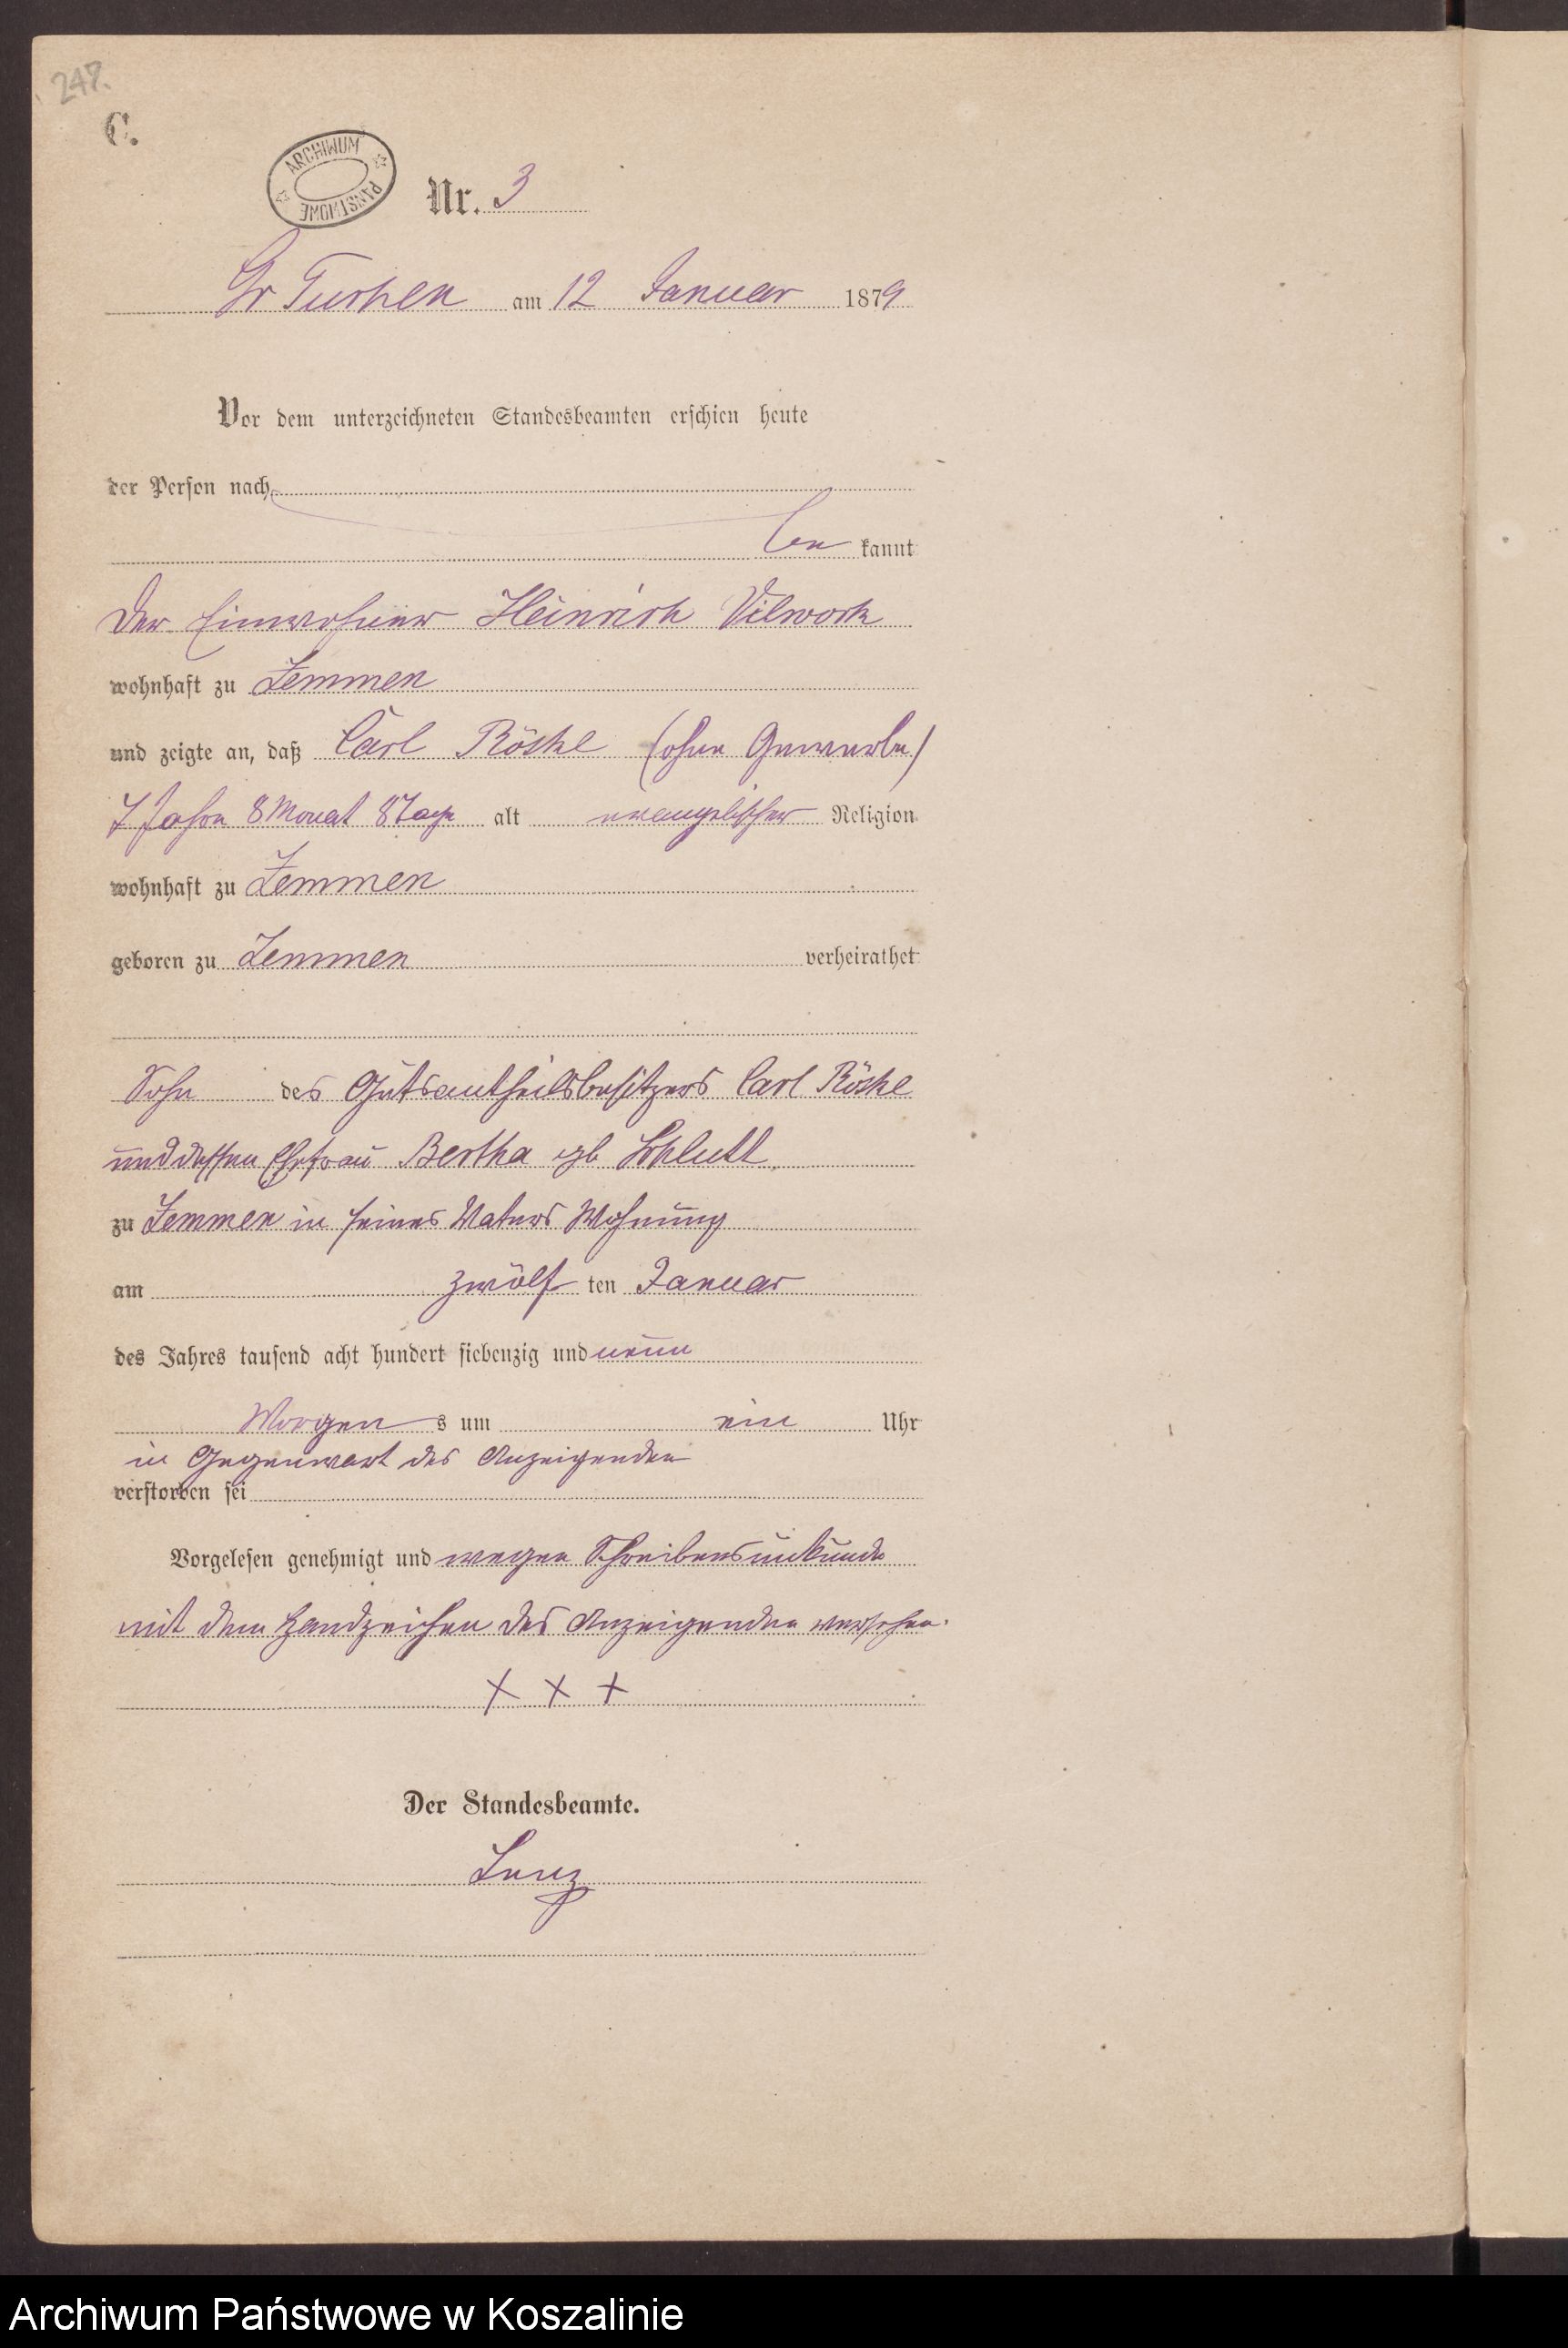 247.
C.
ARCHIWUM PAŃSTWOWE
Nr. 3
Gr Tuchen am 12 Januar 1879
Vor dem unterzeichneten Standesbeamten erschien heute
der Person nach
be kannt
der Einwohner Heinrich Vilwock
wohnhaft zu Zemmen
und zeigte an, daß Carl Röske (ohne Gewerbe)
7 Jahre 8 Monat 8 Tage alt evangelischer Religion
wohnhaft zu Zemmen
geboren zu Zemmen verheirathet
Sohn des Gutsantheilsbesitzers Carl Röske
und dessen Ehefrau Bertha gb Schlutt
zu Zemmen in seines Vaters Wohnung
am zwölf ten Januar
des Jahres tausend acht hundert siebenzig und neun
Morgen s um ein Uhr
in Gegenwart des Anzeigenden
verstorben sei
Vorgelesen genehmigt und wegen Schreibensunkunde
mit dem Handzeichen des Anzeigenden versehen.
X X X
Der Standesbeamte.
Lenz
Archiwum Państwowe w Koszalinie